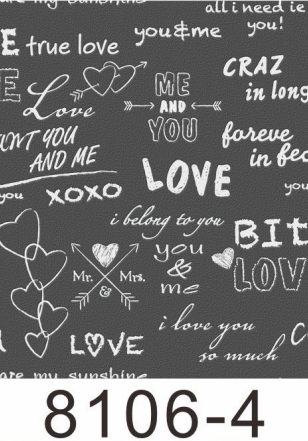 are my sunshine
all i need is
you!
you&me
E true love
CRAZ
in long
E
Love
ME
AND
YOU
foreve
in fee
ANT YOU
AND ME
LOVE
XOXO
you
you
i belong to you
BIt
LOV
you
&
me
Mr. & Mrs.
i love you
so much
C
LOVE
are my sunshine
8106-4